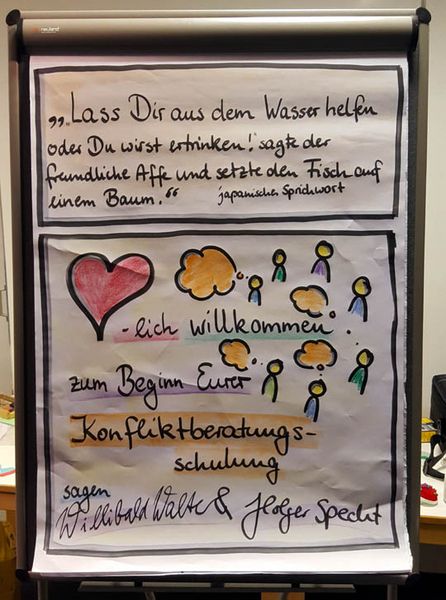 neuland
„Lass Dir aus dem Wasser helfen
oder Du wirst ertrinken!" sagte der
freundliche Affe und setzte den Fisch auf
einem Baum."
japanisches Sprichwort
-lich willkommen
zum Beginn Eurer
Konfliktberatungs-
schulung
sagen
Willibald Walter & Holger Specht